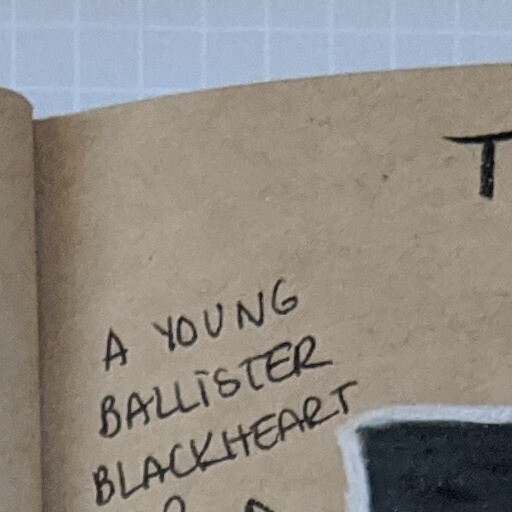 T
A YOUNG
BALLISTER
BLACKHEART